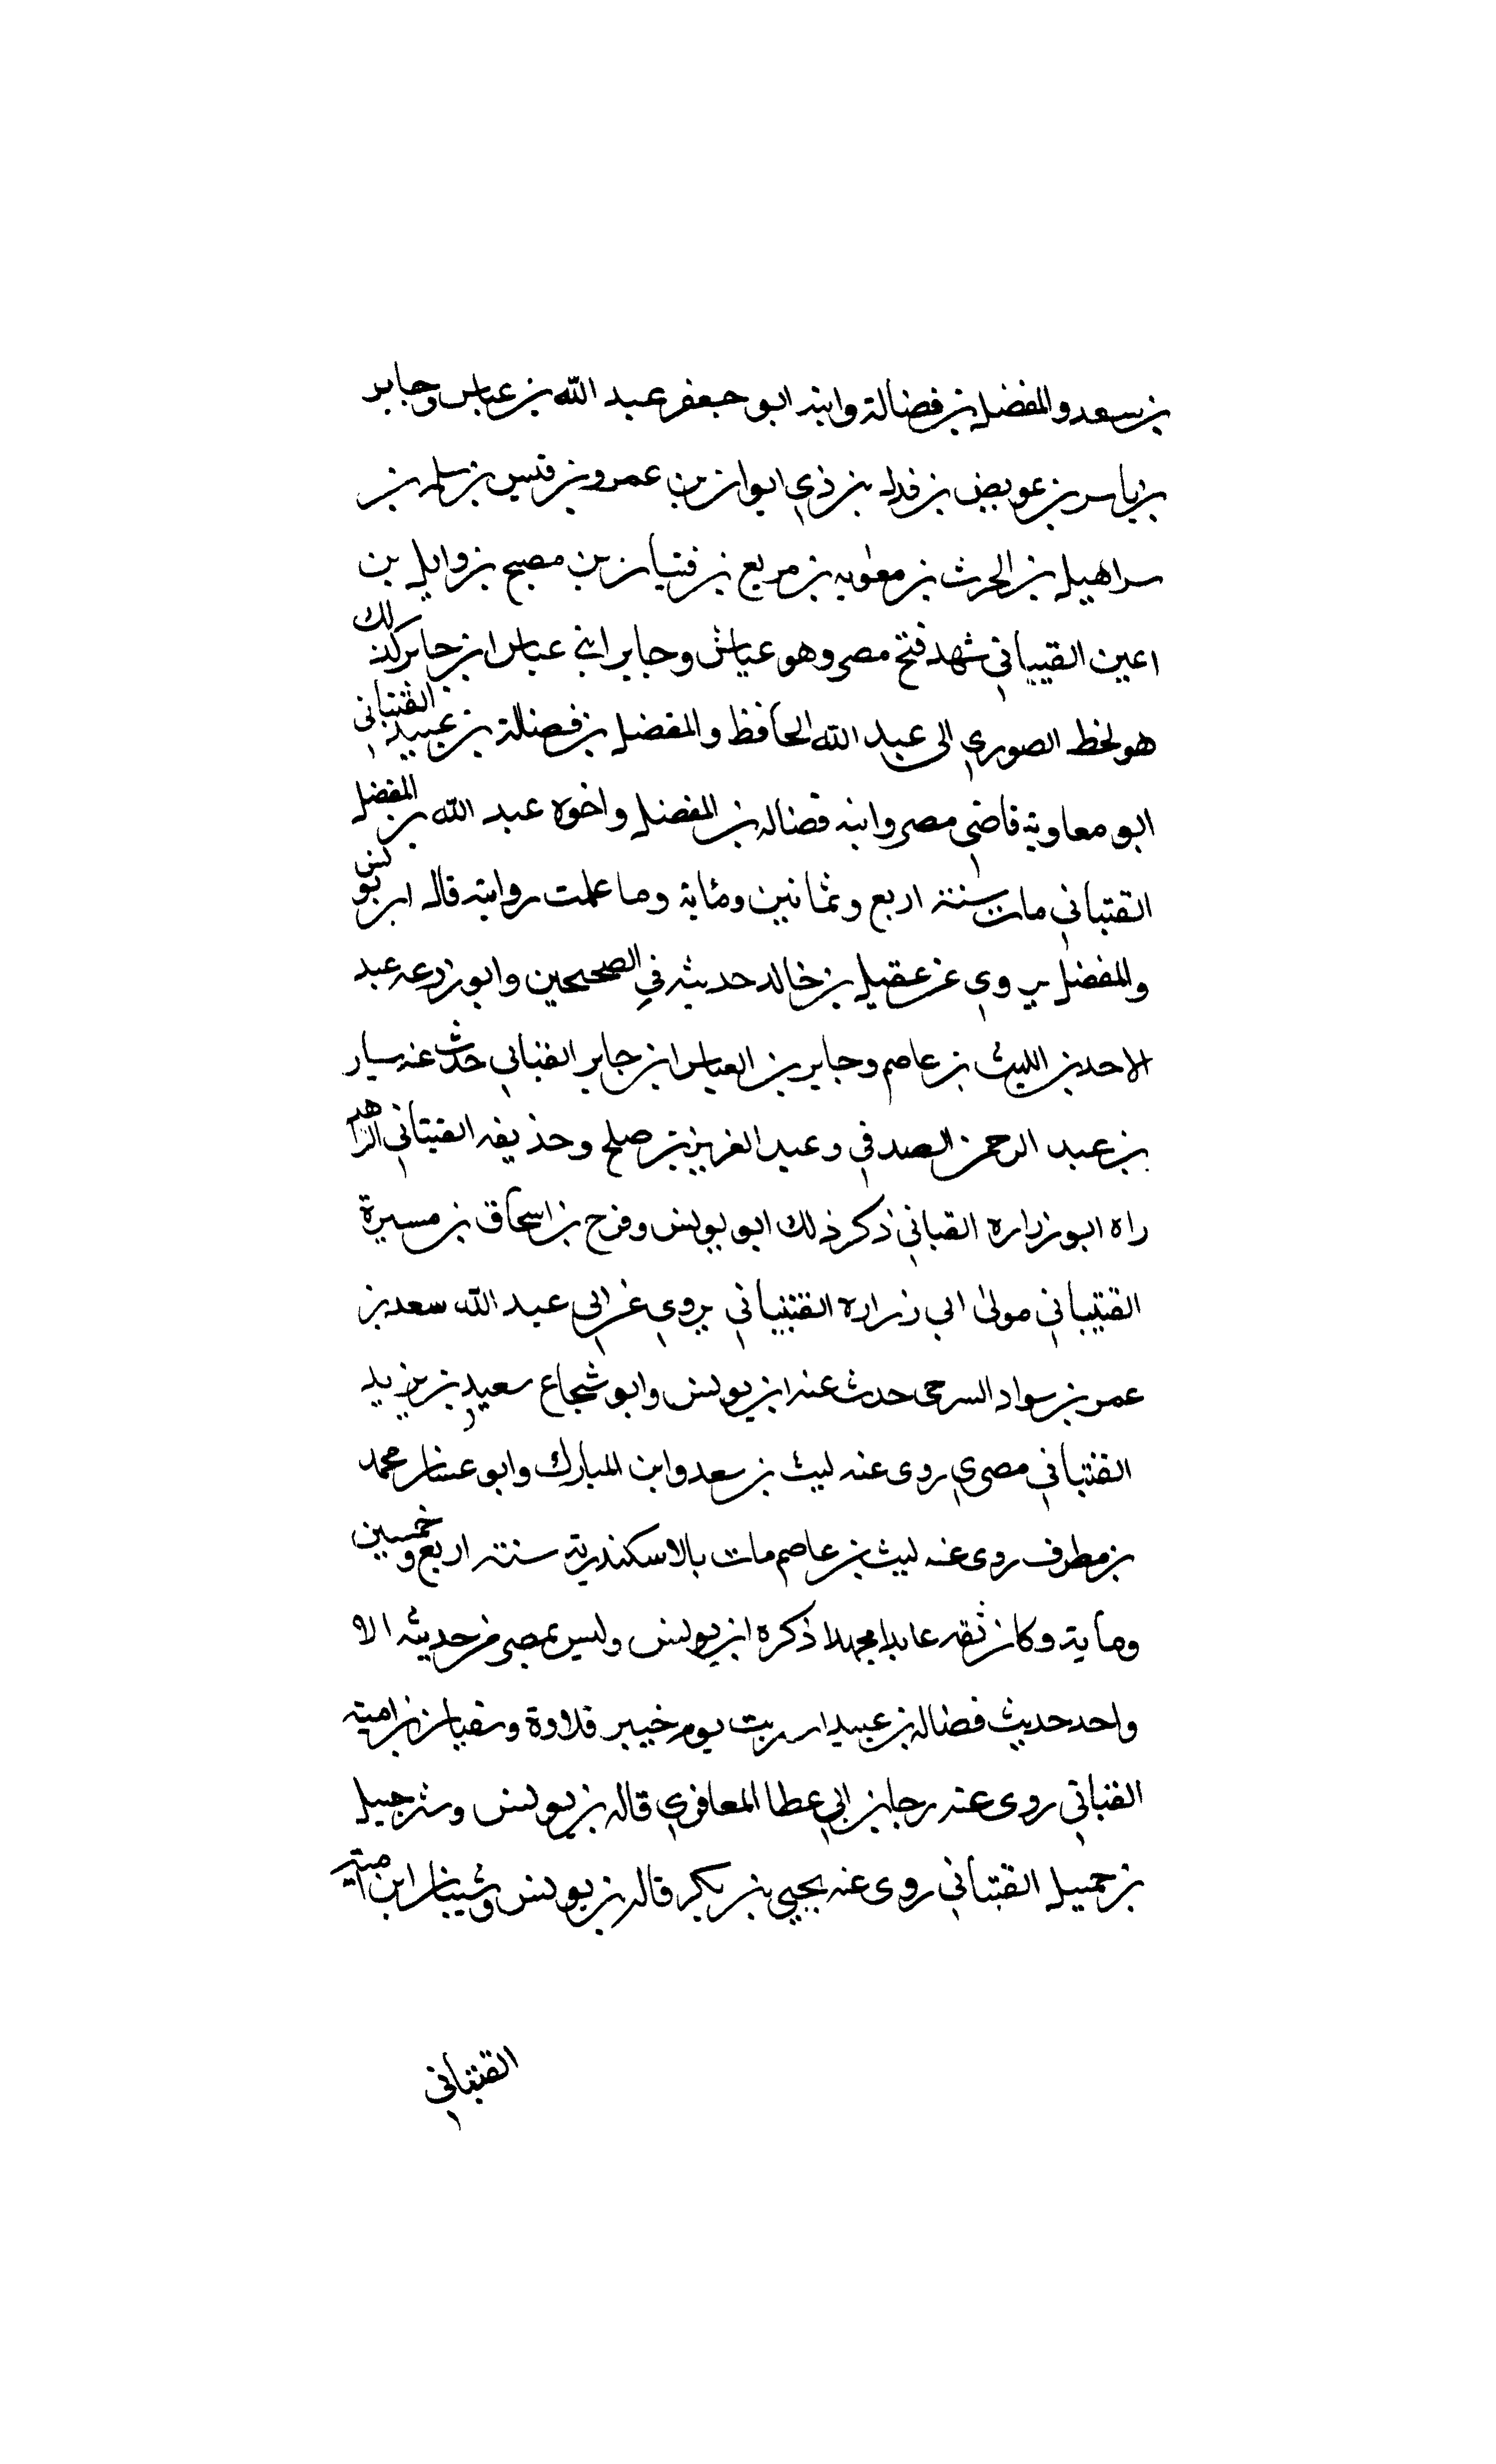 بن سعد والمفضل بن فضالة وابنه ابو جعفر عبد الله بن عباس وجابر
بن ياسر بن عويص بن فدك بن ذي ايوان بن عمرو بن قيس بن سلمه بن
سراهيل بن الحرث بن معويه بن مربع بن قتيان بن مصبح بن وايل بن
اعين القتباني شهد فتح مصر وهو عياش وجابر ابني عباس ابن جابر كذلك
هو بخط الصوري الى عبد الله الحافظ والمفضل بن فضالة بن عبيد القتباني
ابو معاوية قاضي مصر وابنه فضاله بن المفضل واخوه عبد الله بن المفضل
القتباني مات سنة اربع وثمانين ومئاية وما علمت روايته قاله ابن يونس
والمفضل يروي عن عقيل بن خالد حديثه في الصحيحين وابو زرعه عبد
الاحد بن الليث بن عاصم وجابر بن العباس ابن جابر القتباني حدث عنه سيار
بن عبد الرحمن الصدفي وعبد العزيز بن صلح وحذيفه القتباني الزاهد
راه ابو زراره القتباني ذكر ذلك ابو يونس وفرح بن اسحاق بن مسيرة
القتيباني مولى ابي زراره القتيباني يروي عن ابي عبد الله سعد بن
عمر بن سواد السرحى حدث عنه ابن يونس وابو شجاع سعيد بن يزيد
القتباني مصري روى عنه ليث بن سعد وابن المبارك وابو غسان محمد
بن مطرف روى عنه ليث بن عاصم مات بالاسكندرية سنة اربع وخمسين
وماية وكان ثقه عابدا مجهدا ذكره ابن يونس وليس بمصر من حديثه الا
واحد حديث فضاله بن عبيد اسريت يوم خيبر قلادة وسفيان بن امية
القتباني روى عنه رجا بن ابي عطا المعافري قاله بن يونس وشرحبيل
بن حميل القتباني روى عنه يحيى بن بكر قاله بن يونس وشيبان ابن امية
القتباني